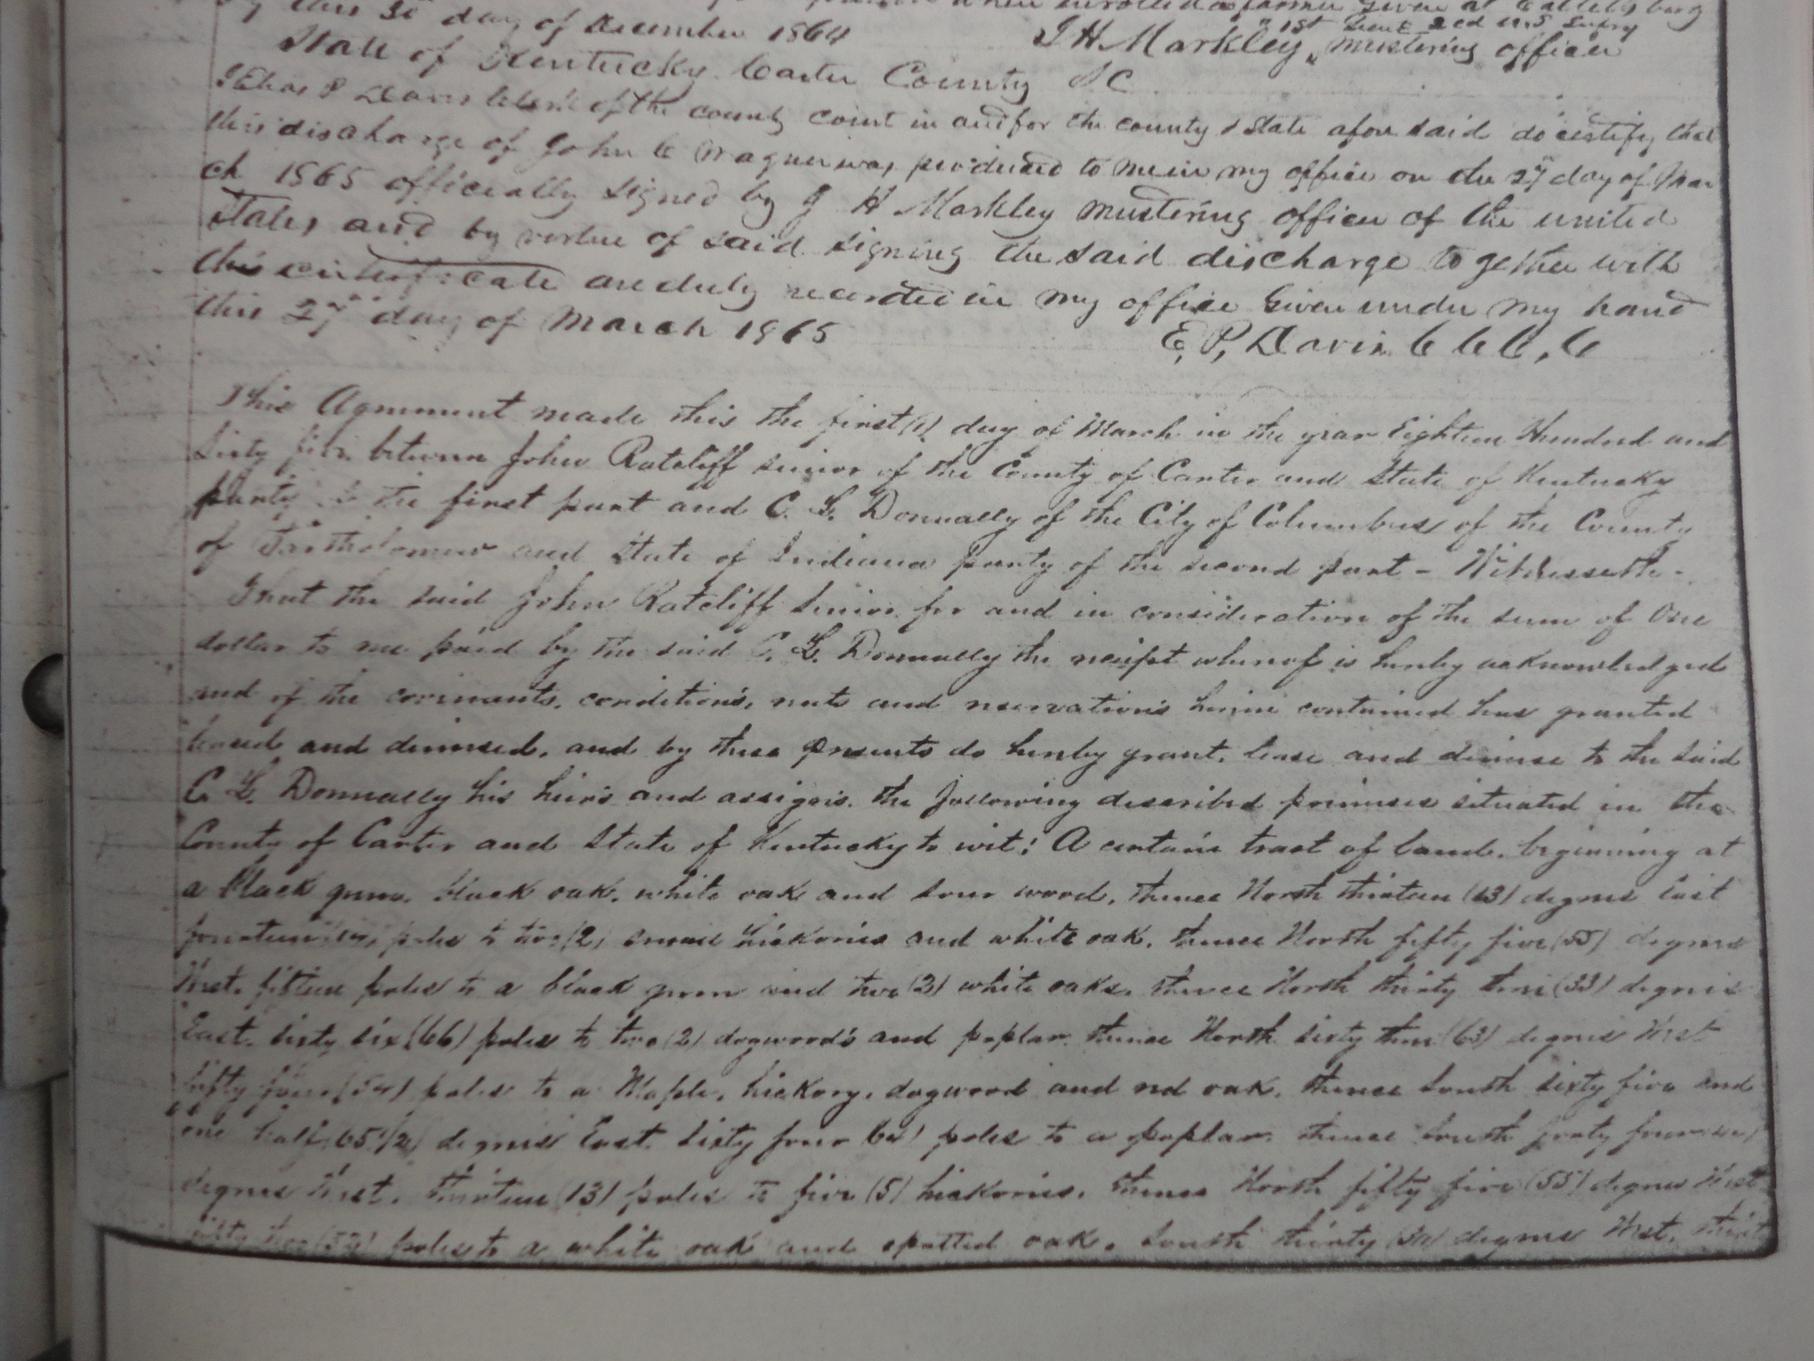 by this 30 day of December 1864
when enrolled a farmer Given at Catletsburg
1st Lieut 2cd U.S Infry
J H Markley, mustering officer
State of Kentucky Carter County SC
I Elias P Davis Clerk of the county court in and for the county & State afore said do certify that
this discharge of John C Wagner was produced to me in my office on the 27" day of Mar
ch 1865 officially signed by J H Markley mustering officer of the united
States and by vertue of said signing the said discharge together with
this certificate are duly recorded in my office Given under my hand
this 27" day of March 1865
E, P, Davis C C C, C
This Agreement made this the first (1) day of March in the year Eighteen Hundred and
Sixty five between John Ratcliff senior of the County of Carter and State of Kentucky
party to the first part and C. G. Donnally of the City of Columbus of the County
of Bartholomew and State of Indiana party of the second part - Witnesseth -
That the said John Ratcliff Senior for and in consideration of the sum of One
dollar to me paid by the said C. G. Donnally the receipt whereof is hereby acknowledged
and of the covenants, conditions, rents and reservations herein contained has granted
leased and demised, and by these presents do hereby grant, lease and demise to the said
C. G. Donnally his heirs and assigns. the following described premises situated in the
County of Carter and State of Kentucky to wit: A certain tract of land. beginning at
a black gum, black oak, white oak and sour wood, thence North thirteen (13) degrees East
fourteen (14) poles to two (2) small hickories and white oak, thence North fifty five (55) degrees
West, fifteen poles to a black gum and two (2) white oaks, thence North thirty three (33) degrees
East, sixty six (66) poles to two (2) dogwood's and poplar thence North sixty three (63) degrees West
fifty four (54) poles to a Maple, hickory, dogwood and red oak, thence South sixty five and
one half (65 1/2) degrees East, sixty four 64) poles to a poplar, thence South forty four (44)
degrees West, thirteen (13) poles to five (5) hickories, thence North fifty five (55) degrees West
fifty two (52) poles to a white oak and spotted oak, South thirty (30) degrees West,